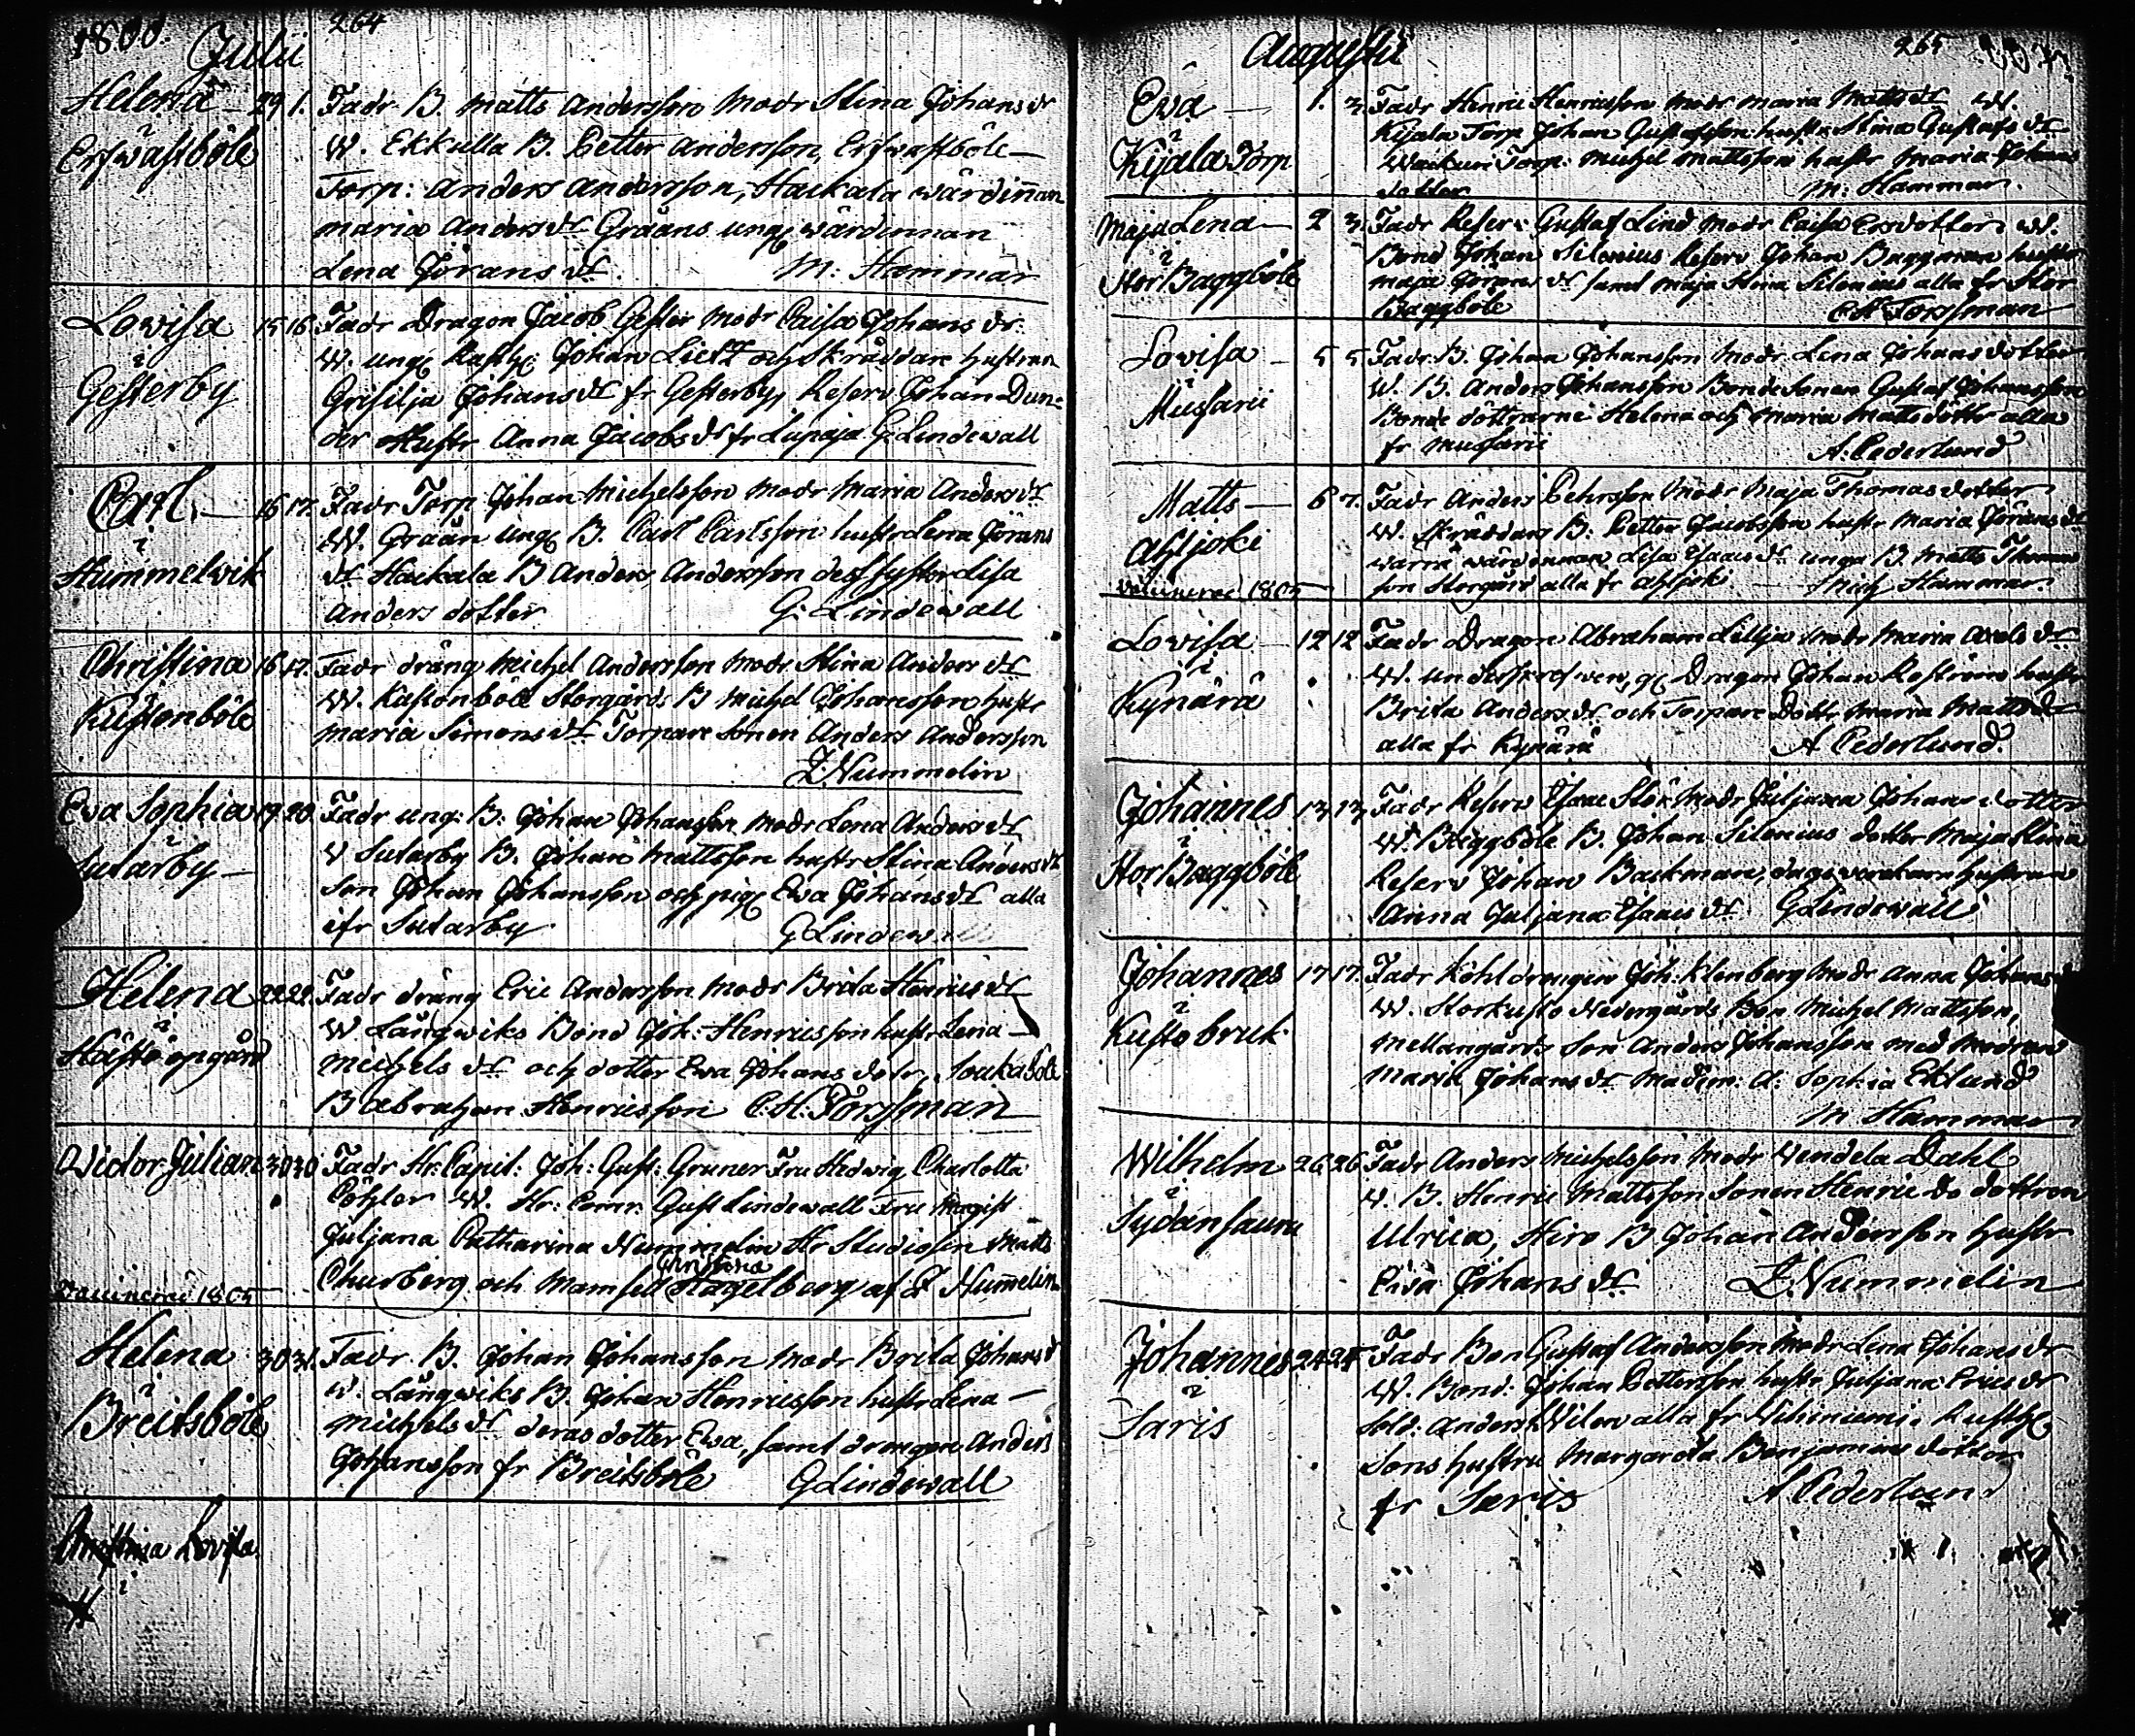 1800. 264
Julii
Helena 29 1. Fadr B. Matts Andersson Modr Stina Johans dr
i
Erfwastböle W. Ekkulla B. Petter Andersson, Erfwastböle
Torp: Anders Andersson, Haikala wärdinnan
Maria Anders dr Grääns ung wärdinnan
Lena Jörans dr. M: Hammar
Lowisa 15 16 Fadr Dragon Jacob Gester Modr Caisa Johans dr.
i W. ung Rusth: Johan och Skräddare hustrun
Gesterby Grisilja Johans dr fr Gesterby, Reserv Johan Dun-
der Hustr Anna Jacobs dr fr Lupaja G. Lindewall
Carl 16 17. Fadr Torp Johan Michelsson Modr Maria Anders dr
i W. Grään ung B. Carl Carlsson hustr Lena Jörans
Hummelwik dr Haikala B Anders Andersson dess syster Lisa
Anders dotter G: Lindewall
Christina 16 17. Fadr dräng Michel Andersson Modr Stina Anders dr
i W. Kustonböle Storgårds B Michel Johansson hustr
Kustonböle Maria Simons dr Torpare Sonen Anders Andersson
Z. Nummelin
Eva Sophia 19 20 Fadr ung: B: Johan Johansson Modr Lena Anders dr
i W Sutarby B. Johan Mattsson hustr Stina Anders dr
Sutarby Son Johan Johansson och pig Ewa Johans dr alla
ifr Sutarby G Lindew
Helena 22 22. Fadr dräng Eric Andersson Modr Brita Henrics dr
i W Långwiks Bond Joh: Henricsson hustr Lena
Hästö öpgård Michels dr och dotter Ewa Johans dotr,
B Abraham Henricsson C: H: Forssman
Victor Julian 30 30 Fadr Hr: Capit: Joh: Gust: Gruner Fru Hedvig Charlotta
Cöhler W. Hr: Gust Lindewall Fru Magist
Juljana Catharina Nummelin Hr Studiosen Matts
Christina
Churberg och Mamsell Hagelberg af Z Nummelin
Vaccinerad 1805
Helena 30 31. Fadr B. Johan Johansson Modr Brita Johans dr
i W. Långwiks B. Johan Henricsson hustr Lena
Breitsböle Michels dr deras dotter Ewa, samt drengen Anders
Johansson fr Breitsböle G Lindewall
Christina Lovisa
i
Augusti 265
Eva 1. 3. Fadr Henric Henricsson Modr Maria Matts dr W.
i Kijala Torp Johan Gustafsson hustr Stina Gustafs dr
Kijala Torp Torp: Michel Mattsson hustr Maria Johans
dotter M: Hammar.
Maja Lena 2 3. Fadr Reserv: Gustaf Lind Modr Caisa Ersdotter W.
i Bond Johan Silenius Reserv Johan Baggman hustr
Stor Baggböle Maja Görans dr samt Maja Stina Silenius alla fr Stor
Baggböle C H Forssman
Lovisa 5 5 Fadr. B. Johan Johansson Modr. Lena Johans dotter
i W. B. Anders Johansson Bonde Sonen Gustaf Johansson
Mussarii Bonde döttrarne Helena och Maria Matts döttr alla
fr Mussarii A. Cederlund
Matts 6 7. Fadr Anders Pehrsson Modr Maja Thomas dotter
i W. Skräddare B. Petter Jacobsson hustr Maria Jörans dr
Ahljoki wärdinnan Lisa Isaacs dr unga B Matts Thomas
Vaccinerad 1805 son Storgård alla fr Ahljoki Mich Hammar.
Lovisa 12 12 Fadr Dragon Abraham Lillja Modr Maria Axels dr
i W. Dragon Johan hustr
Kynärä Brita Anders dr och Torpare Dottr Maria Matts dr
alla fr Kynärä A Cederlund.
Johannes 13 13 Fadr Reserv Isaac Stör Modr Juljana Johans dotter
i W. Baggböle B. Johan Silenius dotter Maja Stina
Stor Baggböle Reserv Johan Backman, dagsverckarn hustrun
Anna Juljana Isaacs dr G Lindewall
Johannes 17 17. Fadr Kohl drengen Joh: Klenberg Modr Anna Johans
i W. Storkusto Nedergårds Bon Michel Mattsson,
Kusto bruk Mellangårds Son Anders Johansson med Modren
Maria Johans dr Madem: A: Sophia Eklund
M Hammar
Wilhelm 26 26 Fadr Anders Michelsson Modr Wendela Dahl
i W. B. Henric Mattsson Sonen Henric do dottren
Sydänsauru Ulrica, B Johan Andersson hustr
Caisa Johans dr Z. Nummelin
Johannes 24 25 Fadr Bon Gustaf Andersson Modr Lena Johans dr
i W. Bond: Johan Pettersson hustr Juljana Erics dr
Saris Sold: Anders Wilen alla fr Rusth
Sons hustru Margareta Benjamins dotter
fr Saris A Cederlund